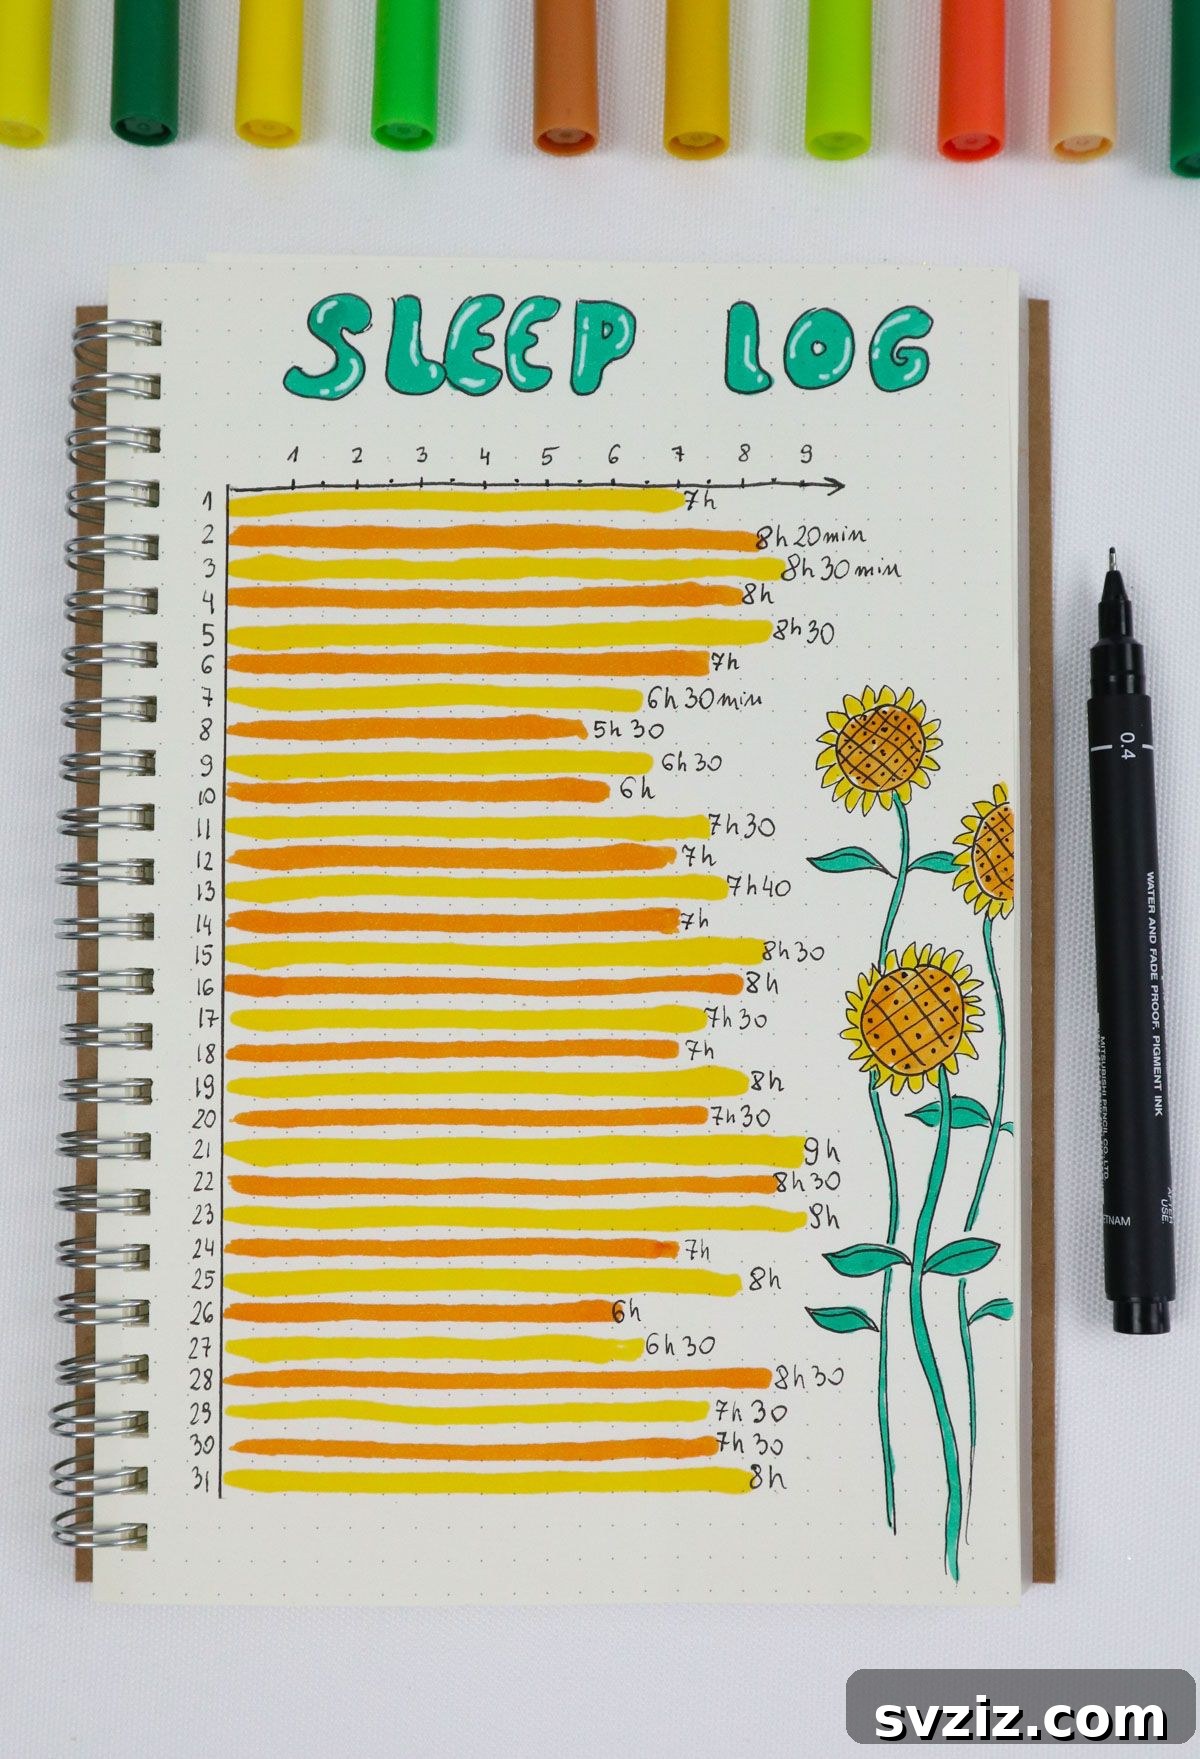 SLEEP LOG
1 2 3 4 5 6 7 8 9
1 7h
2 8h 20min
3 8h 30 min
4 8h
5 8h 30
6 7h
7 6h 30min
8 5h 30
9 6h 30
10 6h
11 7h 30
12 7h
13 7h 40
14 7h
15 8h 30
16 8h
17 7h 30
18 7h
19 8h
20 7h 30
21 9h
22 8h 30
23 9h
24 7h
25 8h
26 6h
27 6h 30
28 8h 30
29 7h 30
30 7h 30
31 8h
0.4
WATER AND FADE PROOF. PIGMENT INK
MITSUBISHI PENCIL CO., LTD.
USE.
svziz.com